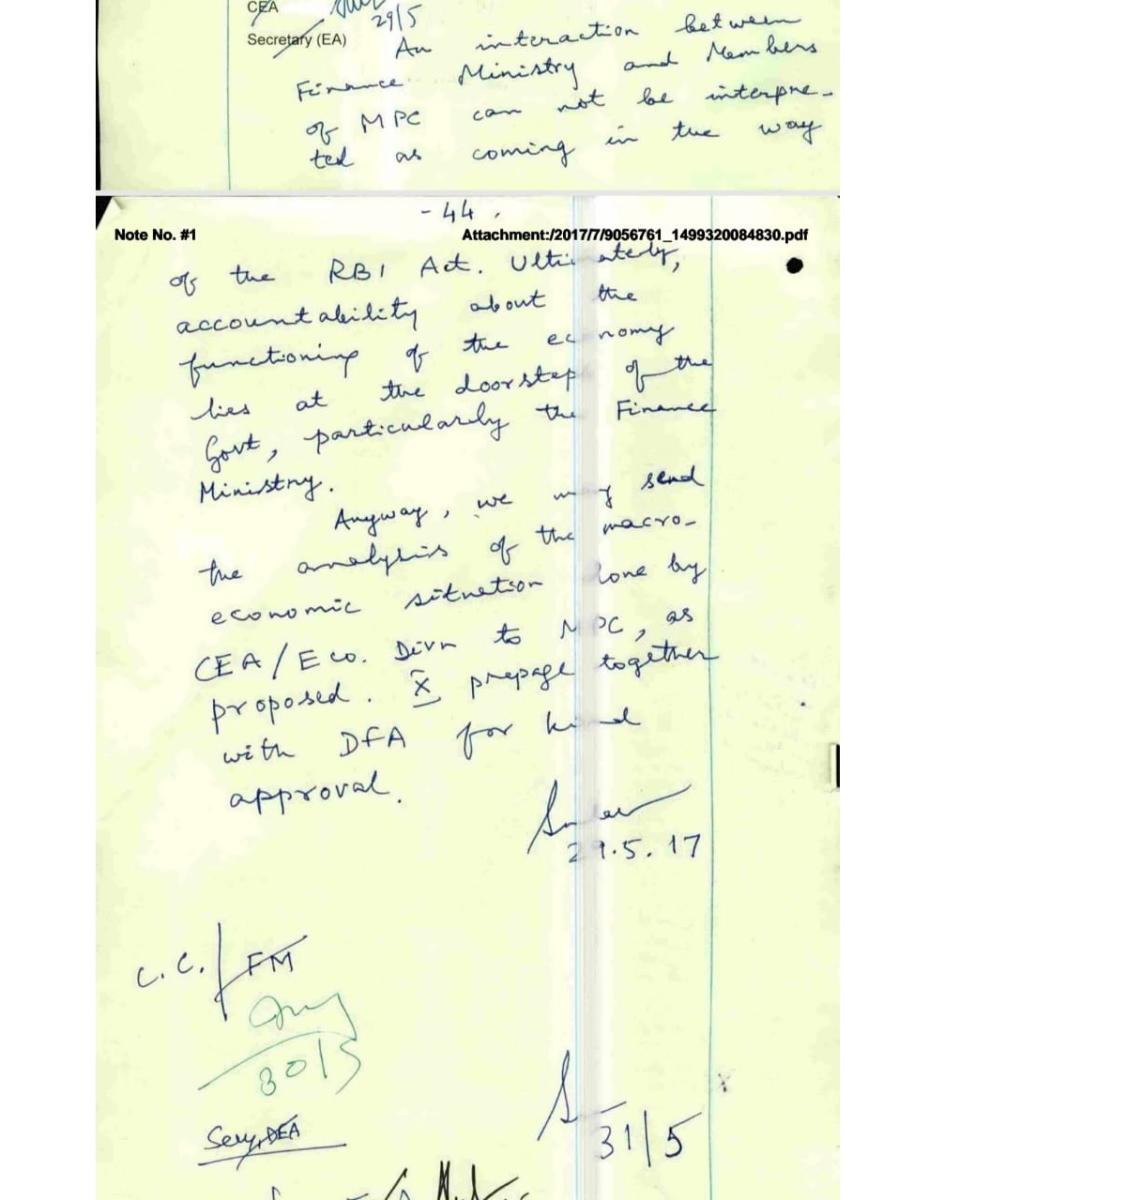 CEA
29/5
Secretary (EA)
An interaction between
Finance Ministry and Members
of MPC can not be interpre-
ted as coming in the way
- 44 .
Note No. #1 Attachment:/2017/7/9056761_1499320084830.pdf
of the RBI Act. Ultimately,
accountability about the
functioning of the economy
lies at the doorstep of the
Govt, particularly the Finance
Ministry.
Anyway, we may send
the analysis of the macro-
economic situation done by
CEA/Eco. Divn to MPC, as
proposed. X prepage together
with DFA for kind
approval.
29.5.17
C.C./FM
30/5
Secy, DEA
31/5